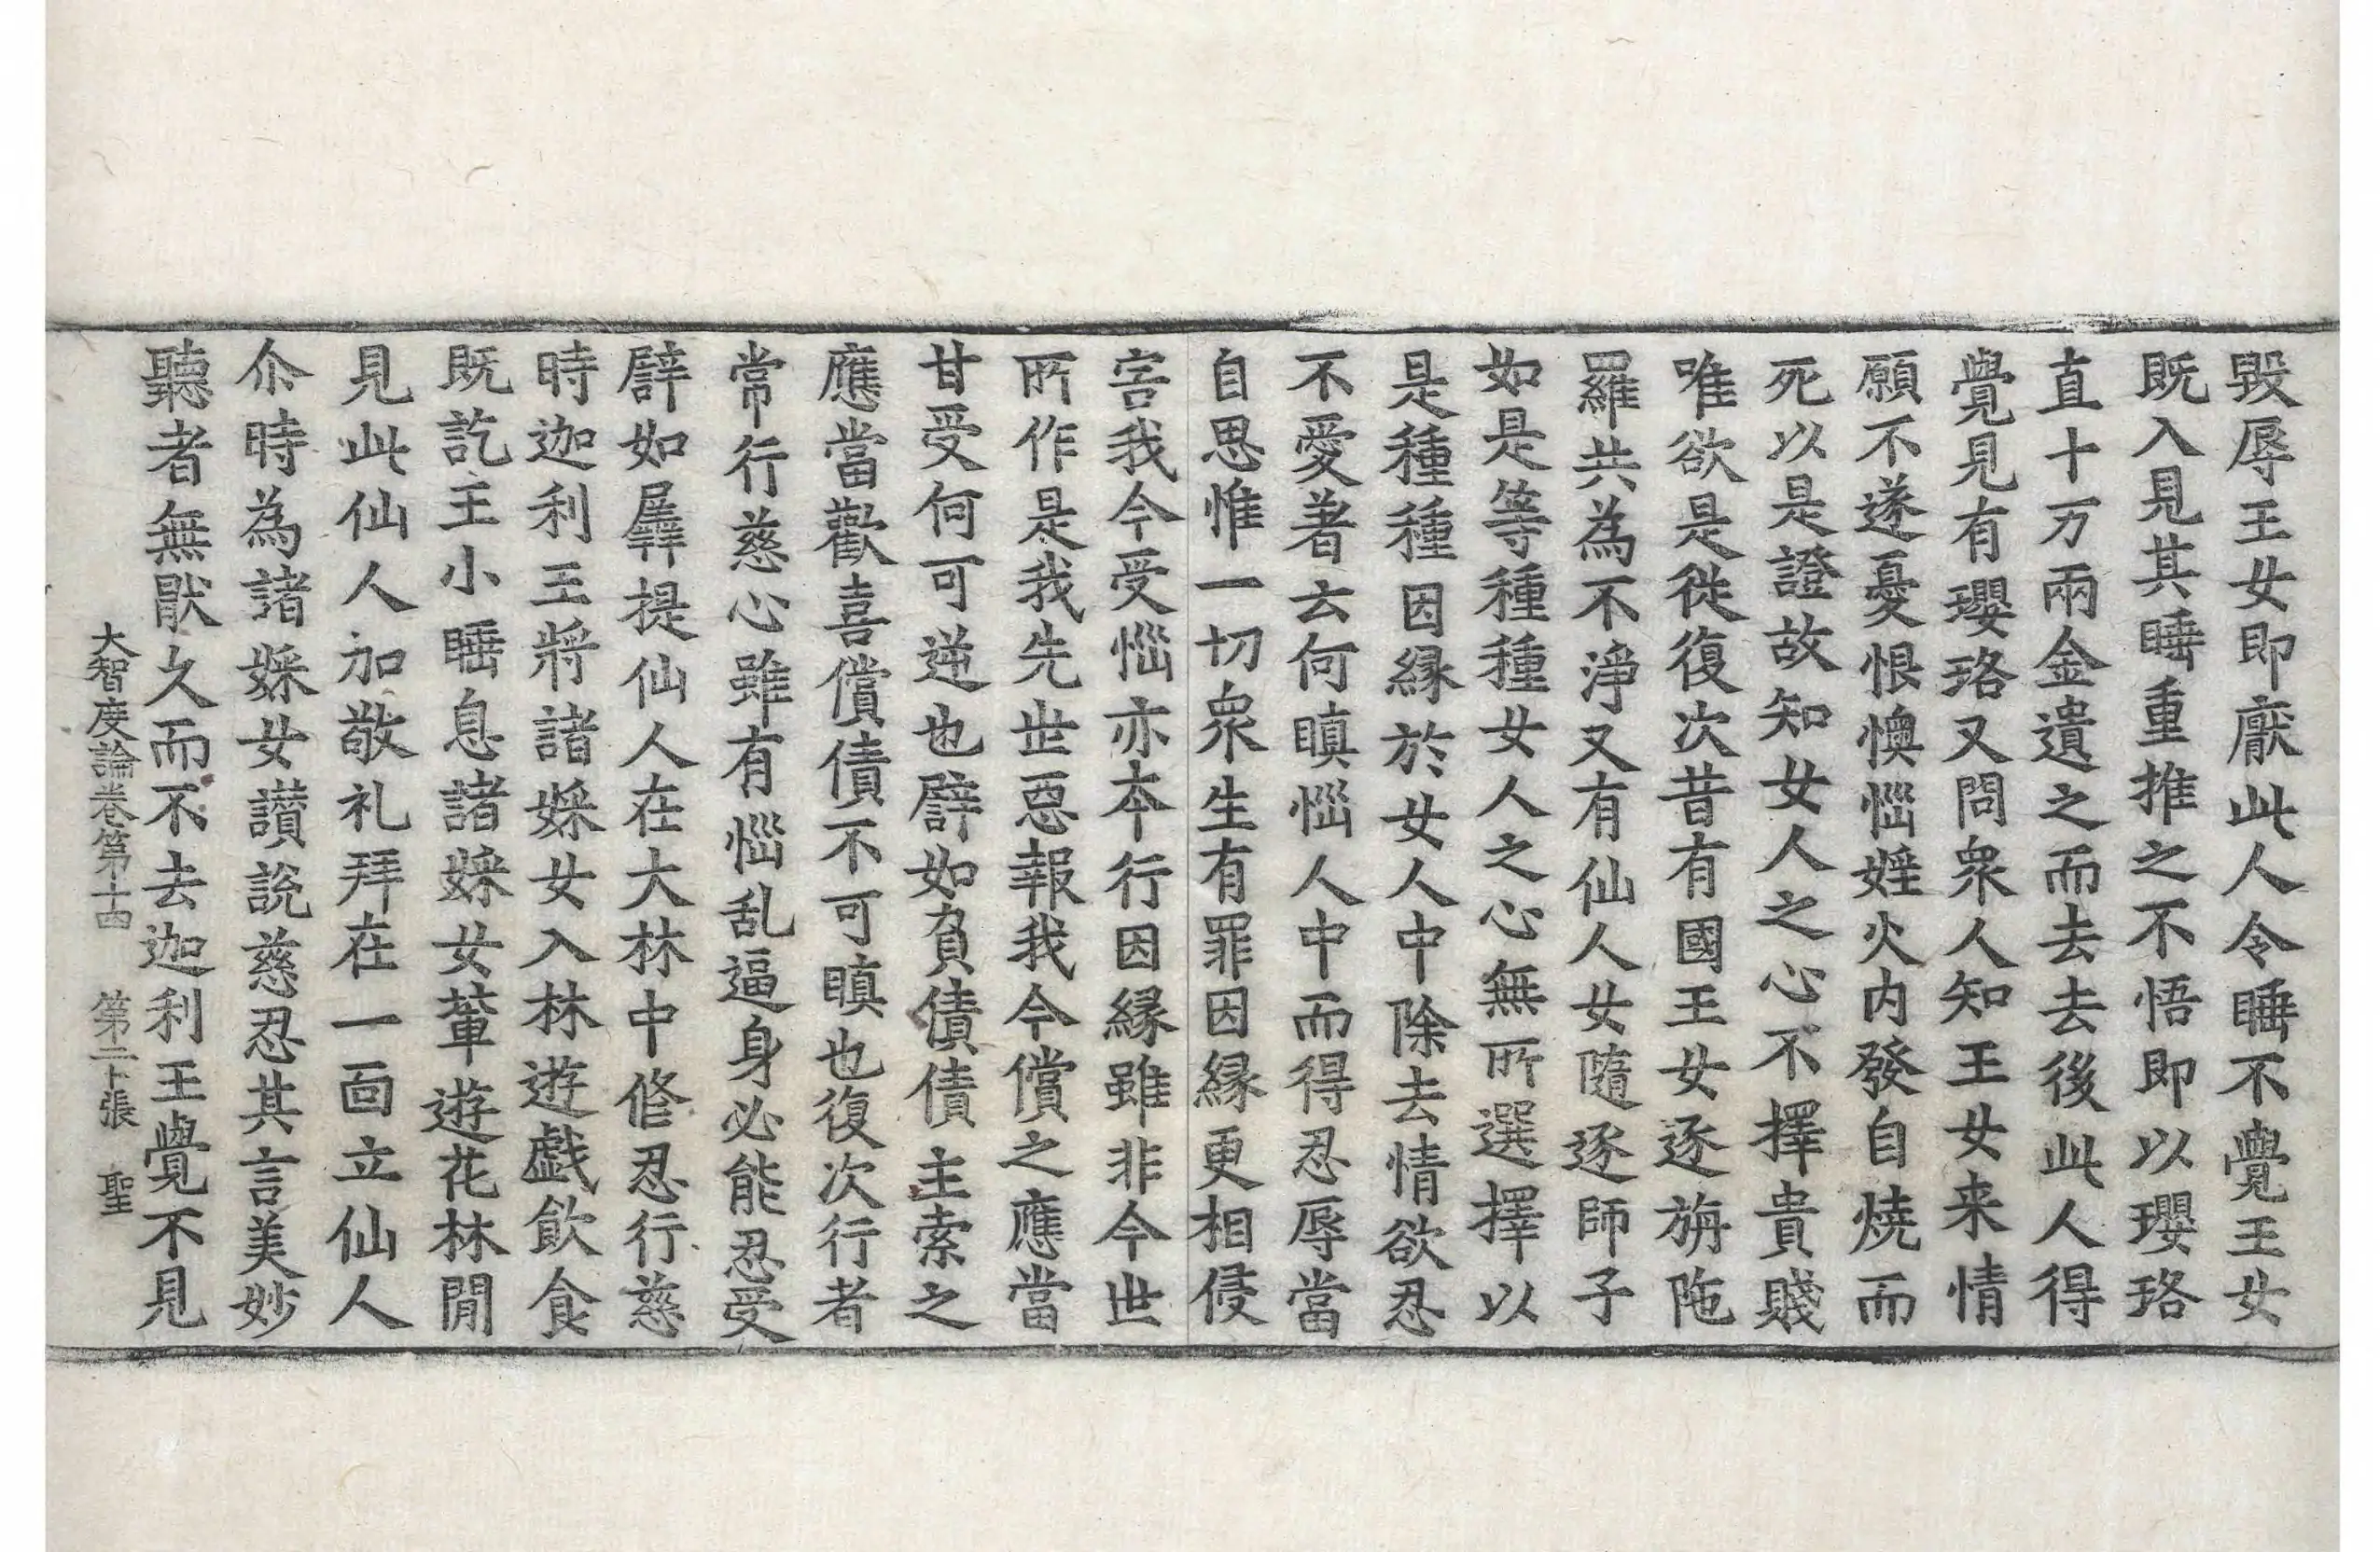 毀辱王女即厭此人令睡不覺王女
既入見其睡重推之不悟即以瓔珞
直十万兩金遺之而去去後此人得
覺見有瓔珞又問衆人知王女来情
願不遂憂恨懊惱婬火内發自燒而
死以是證故知女人之心不擇貴賤
唯欲是從復次昔有國王女逐旃陁
羅共為不淨又有仙人女隨逐師子
如是等種種女人之心無所選擇以
是種種因縁於女人中除去情欲忍
不愛著云何瞋惱人中而得忍辱當
自思惟一切衆生有罪因縁更相侵
害我今受惱亦本行因縁雖非今世
所作是我先世惡報我今償之應當
甘受何可逆也譬如負債債主索之
應當歡喜償債不可瞋也復次行者
常行慈心雖有惱乱逼身必能忍受
譬如羼提仙人在大林中修忍行慈
時迦利王將諸婇女入林遊戲飲食
既訖王小睡息諸婇女輩遊花林閒
見此仙人加敬礼拜在一面立仙人
尒時為諸婇女讃說慈忍其言美妙
聽者無猒久而不去迦利王覺不見
大智度論卷第十四 第二十張 聖